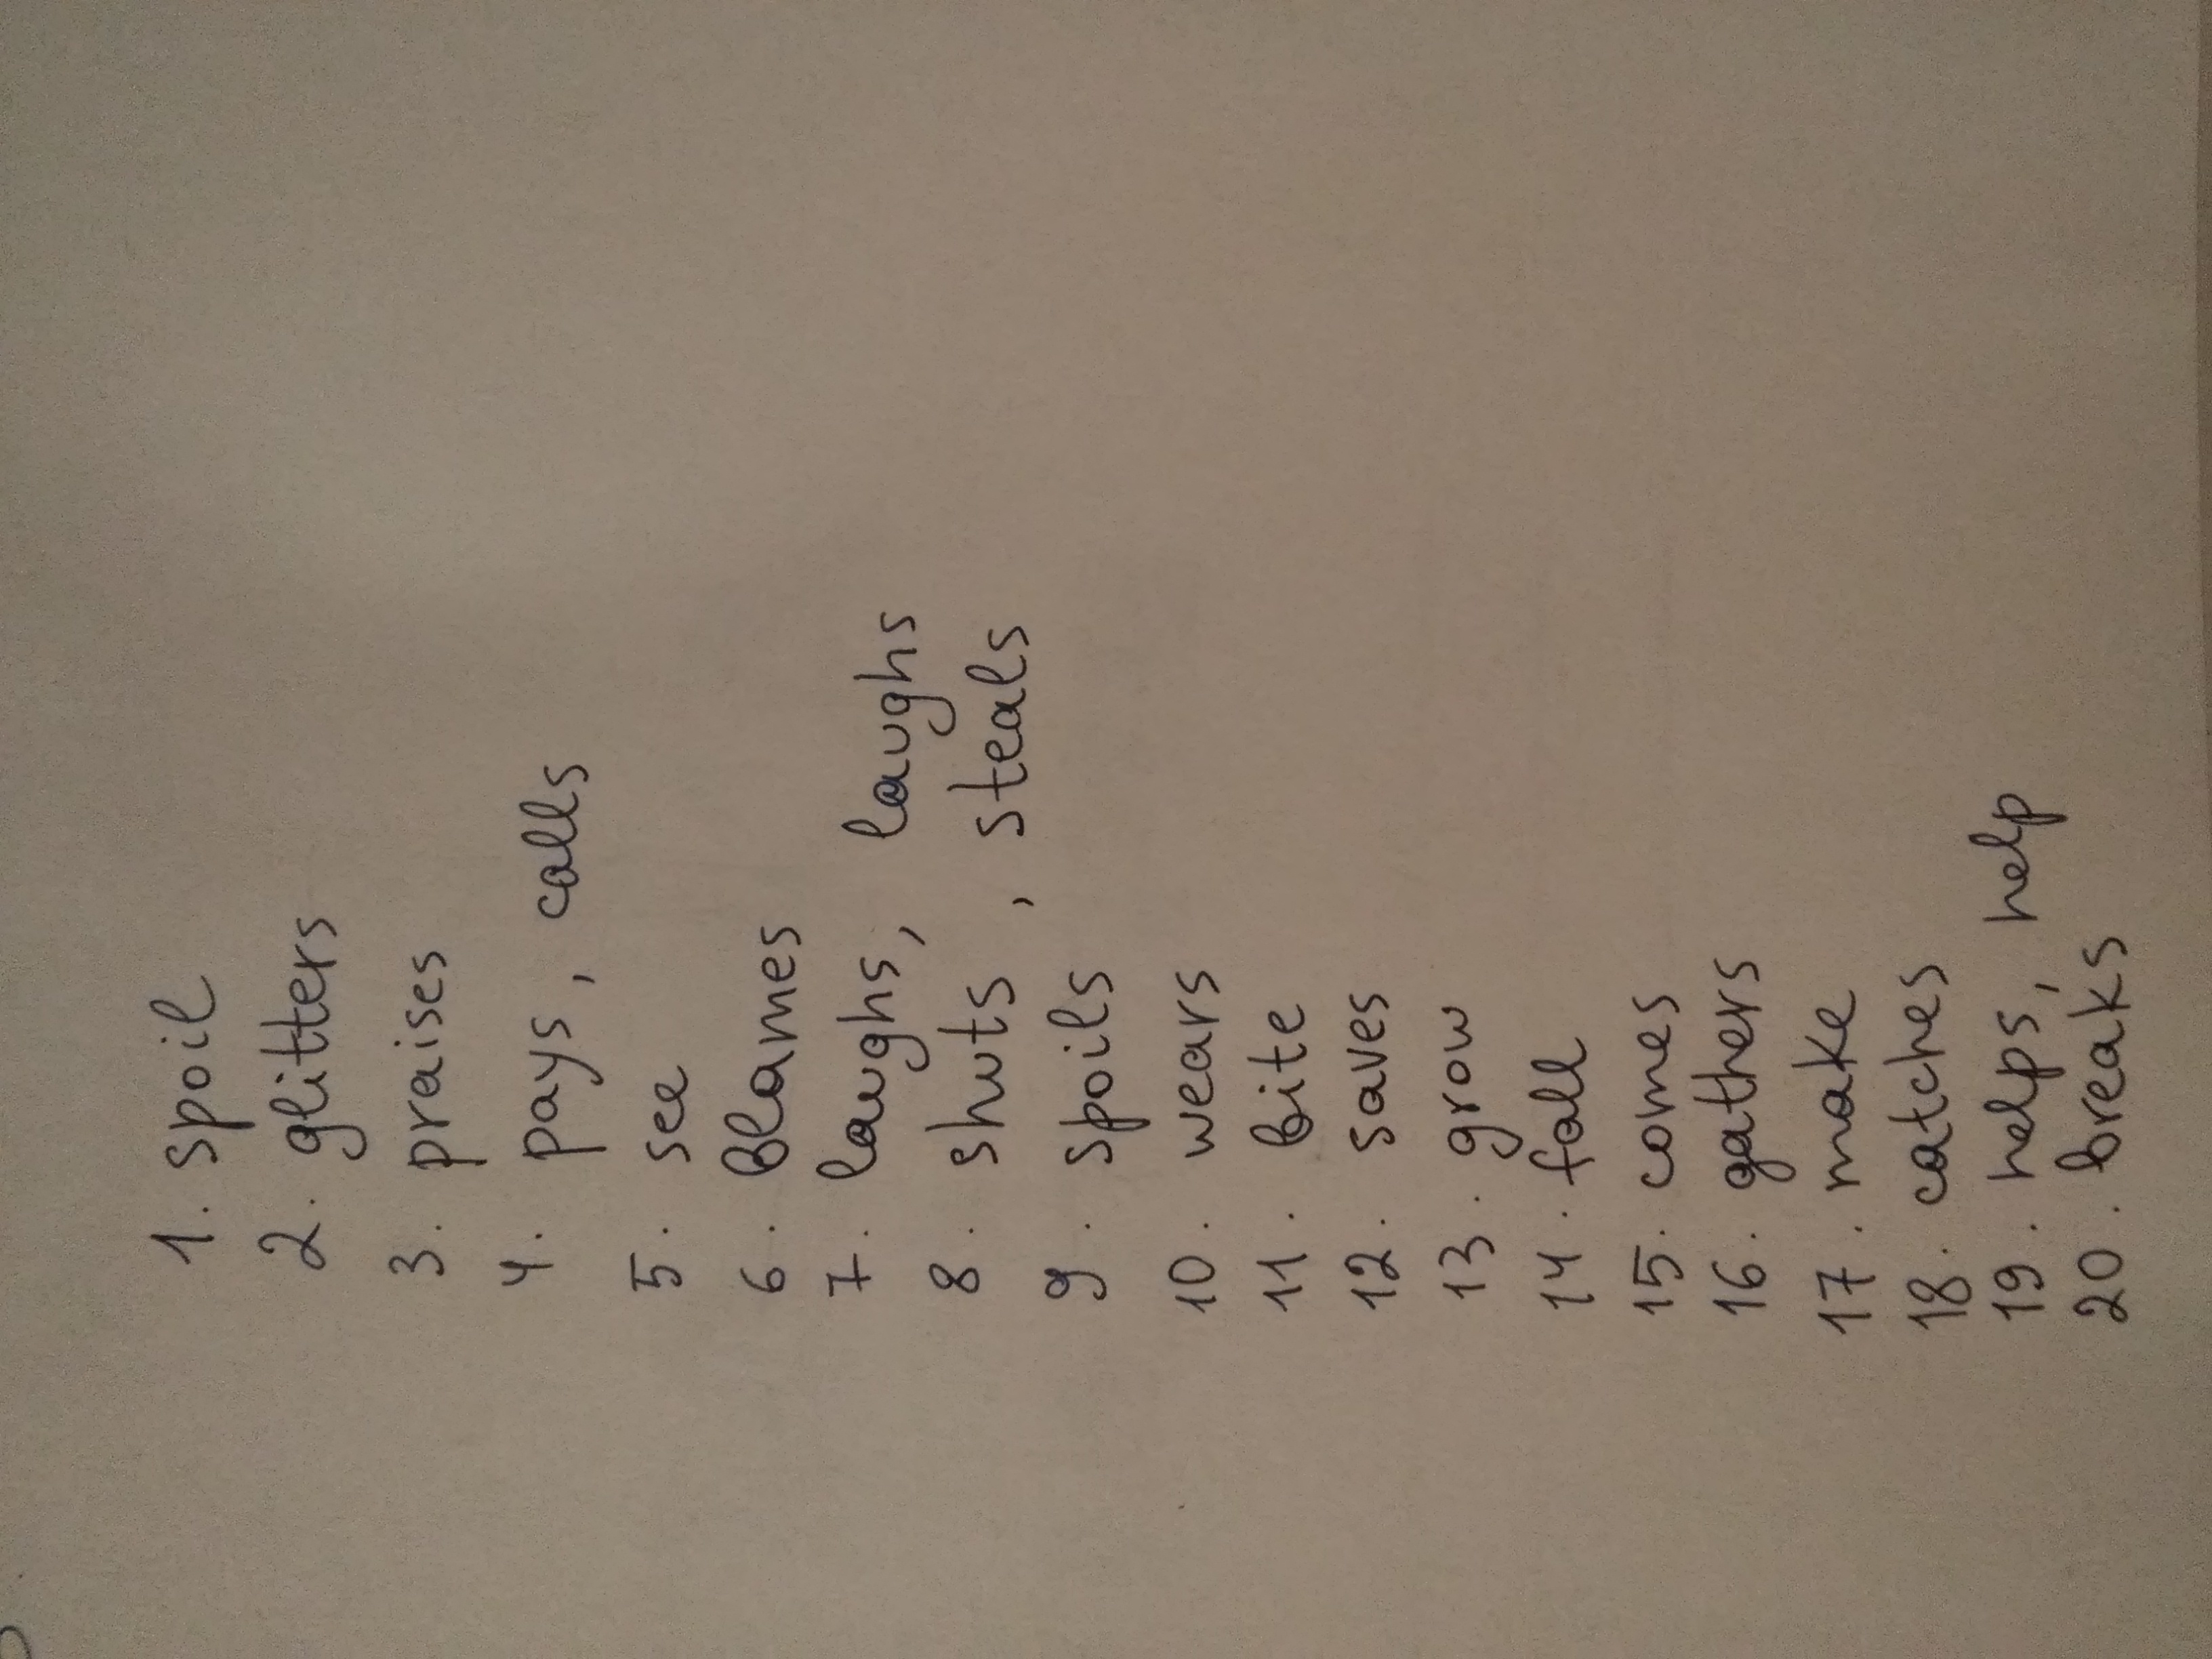 1. spoil
2. glitters
3. praises
4. pays, calls
5. see
6. blames
7. laughs, laughs
8. shuts, steals
9. spoils
10. wears
11. bite
12. saves
13. grow
14. fall
15. comes
16. gathers
17. make
18. catches
19. helps, help
20. breaks